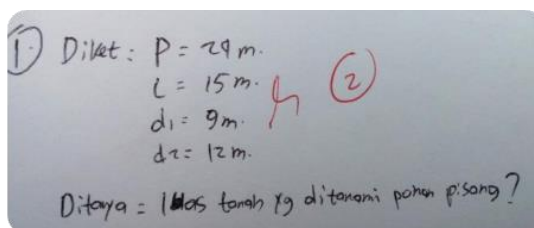 ① Diket : P = 24 m.
l = 15 m. ②
d1 = 9 m.
d2 = 12 m.
Ditanya = luas tanah yg ditanami pohon pisang?